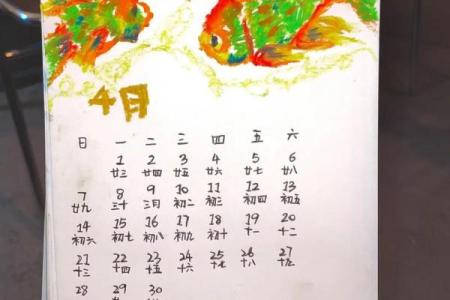 4月
日 一 二 三 四 五 六
1 2 3 4 5 6
廿三 廿四 廿五 廿六 廿七 廿八
7 8 9 10 11 12 13
廿九 三十 三月 初二 初三 初四 初五
14 15 16 17 18 19 20
初六 初七 初八 初九 初十 十一 十二
21 22 23 24 25 26 27
十三 十四 十五 十六 十七 十八 十九
28 29 30